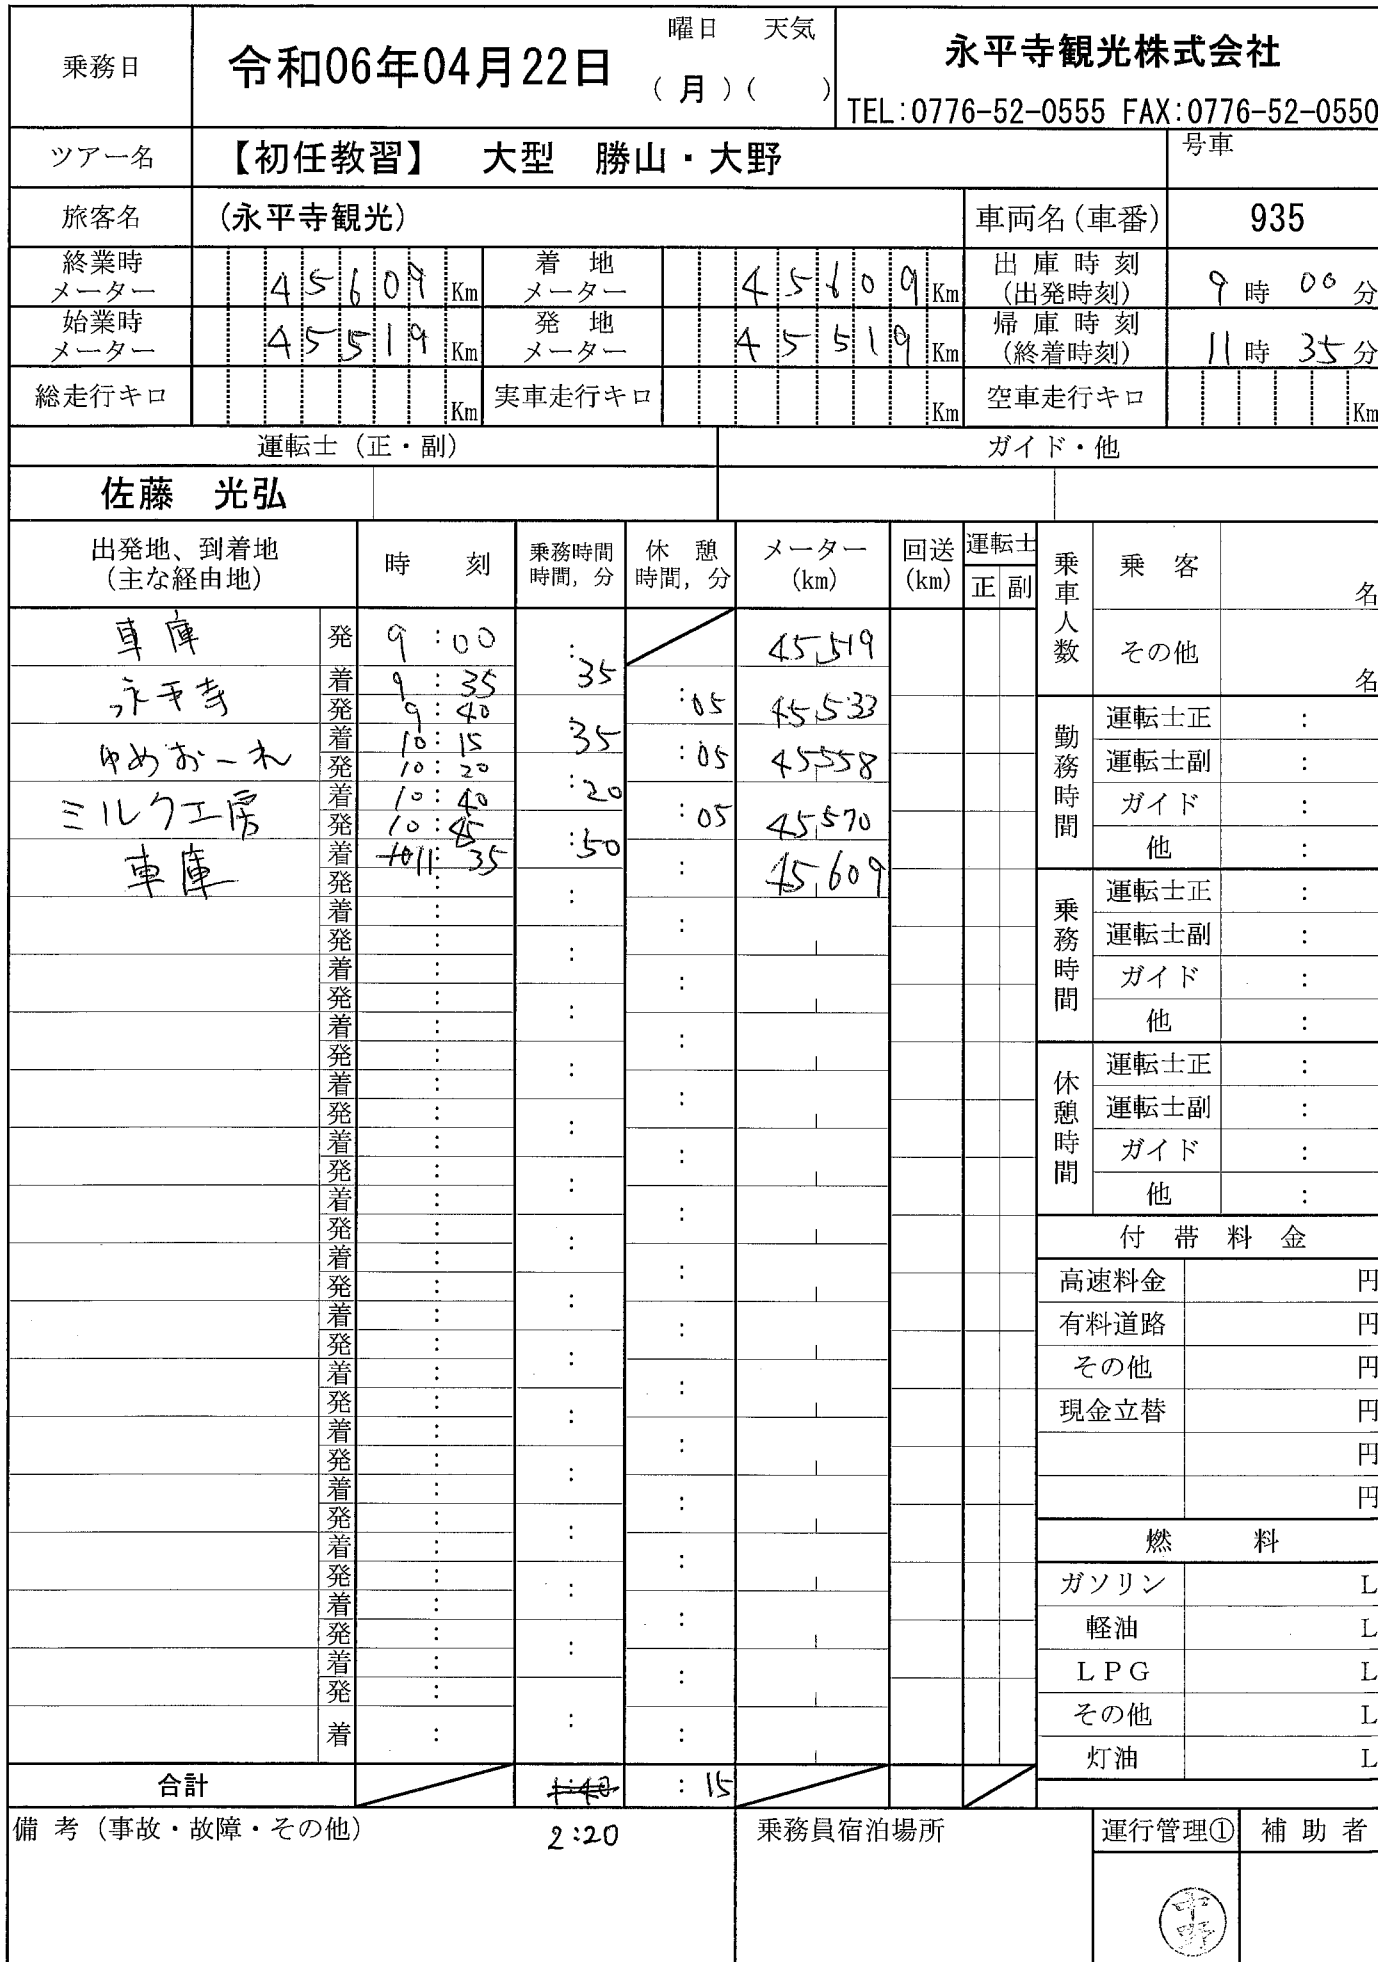 乗務日 令和06年04月22日 曜日 天気 (月)( ) 永平寺観光株式会社
TEL:0776-52-0555 FAX:0776-52-0550
ツアー名 【初任教習】 大型 勝山・大野 号車
旅客名 (永平寺観光) 車両名(車番) 935
終業時メーター 45609 Km 着地メーター 45609 Km 出庫時刻(出発時刻) 9時 00分
始業時メーター 45519 Km 発地メーター 45519 Km 帰庫時刻(終着時刻) 11時 35分
総走行キロ Km 実車走行キロ Km 空車走行キロ Km
運転士(正・副) ガイド・他
佐藤 光弘
出発地、到着地(主な経由地) 時刻 乗務時間 時間,分 休憩 時間,分 メーター(km) 回送(km) 運転士 正 副
車庫 発 9:00 :35 45,519
永平寺 着 9:35 発 9:40 :05 45,533
:35
ゆめおーれ 着 10:15 発 10:20 :05 45,558
:20
ミルク工房 着 10:40 発 10:45 :05 45,570
:50
車庫 着 11:35 発 : : 45,609
着 : 発 :
着 : 発 :
着 : 発 :
着 : 発 :
着 : 発 :
着 : 発 :
着 : 発 :
着 : 発 :
着 : 発 :
着 : 発 :
着 : 発 :
着 : 発 :
着 : 発 :
着 : 発 :
着 :
合計 1:40 :15
2:20
乗車人数 乗客 名
その他 名
勤務時間 運転士正 :
運転士副 :
ガイド :
他 :
乗務時間 運転士正 :
運転士副 :
ガイド :
他 :
休憩時間 運転士正 :
運転士副 :
ガイド :
他 :
付帯料金
高速料金 円
有料道路 円
その他 円
現金立替 円
円
円
燃料
ガソリン L
軽油 L
LPG L
その他 L
灯油 L
備考(事故・故障・その他) 乗務員宿泊場所 運行管理① 補助者
中野